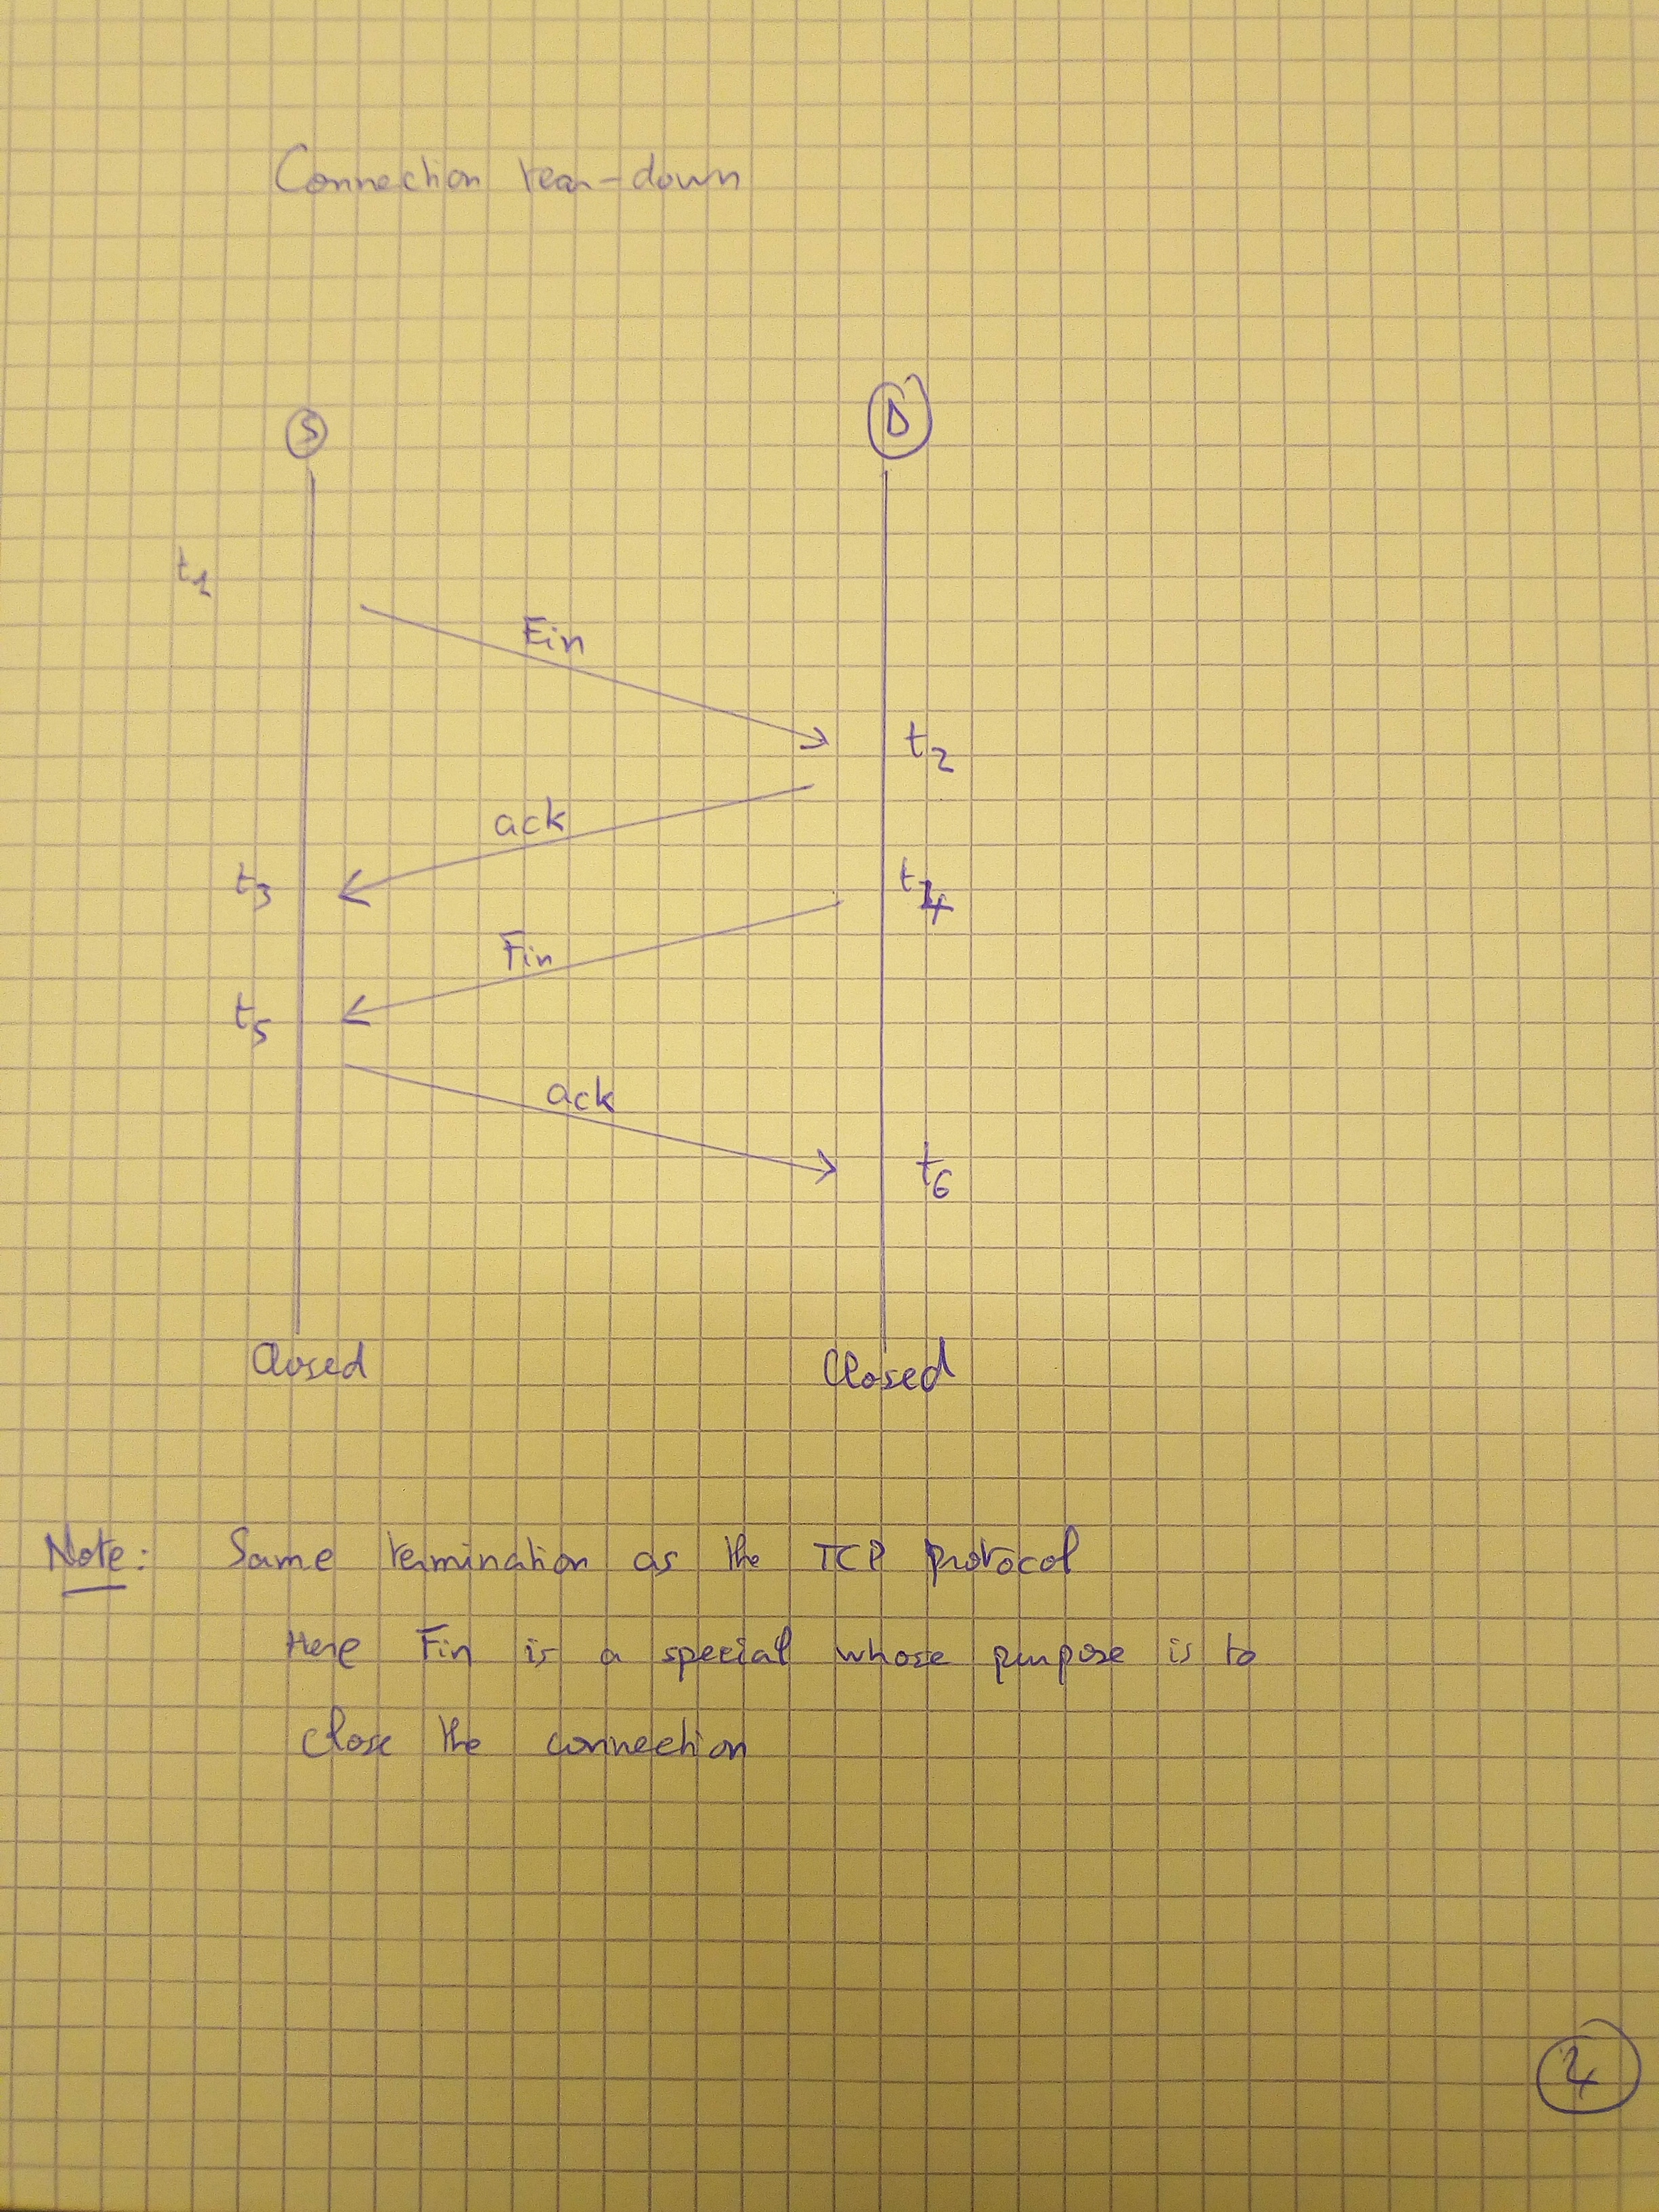 Connection tear-down
S D
t1
Fin
t2
ack
t3 t4
Fin
t5
ack
t6
Closed Closed
Note: Same termination as the TCP protocol
Here Fin is a special whose purpose is to
close the connection
4